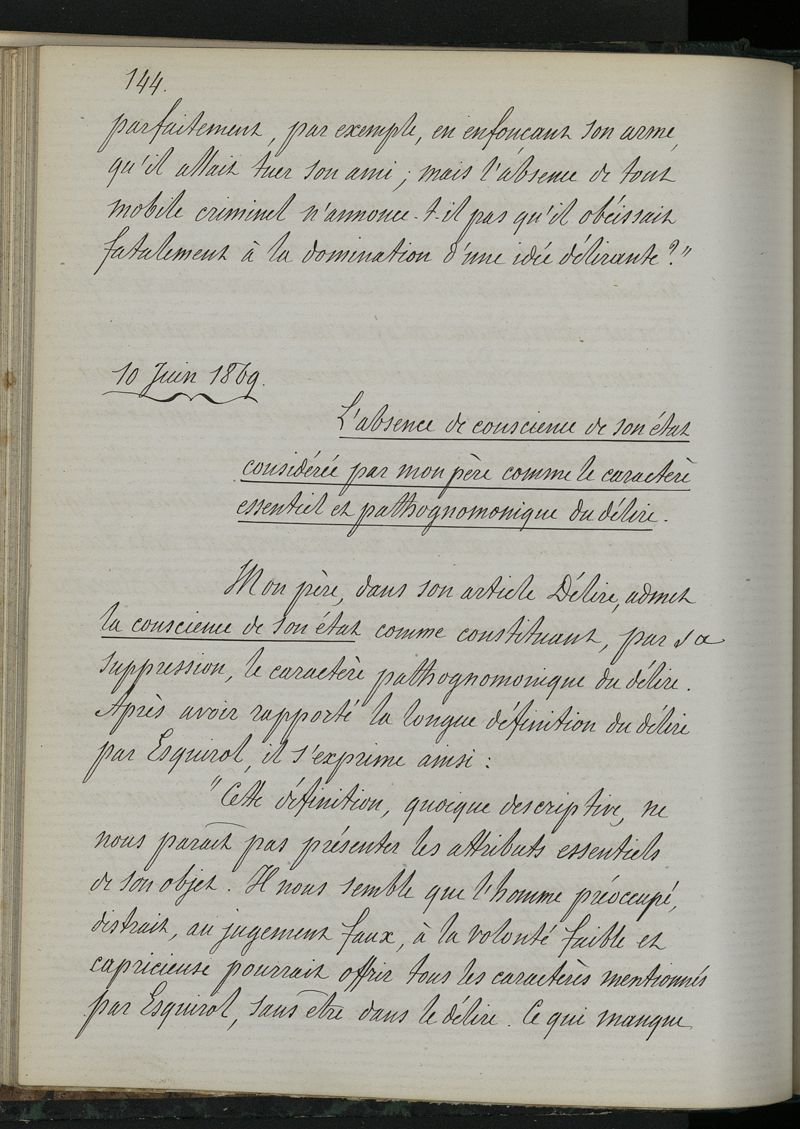 144.
parfaitement, par exemple, en enfonçant son arme,
qu'il allait tuer son ami ; mais l'absence de tout
mobile criminel n'annonce-t-il pas qu'il obéissait
fatalement à la domination d'une idée délirante ?"
10 Juin 1869.
L'absence de conscience de son état
considérée par mon père comme le caractère
essentiel et pathognomonique du délire.
Mon père, dans son article Délire, admet
la conscience de son état comme constituant, par sa
suppression, le caractère pathognomonique du délire.
Après avoir rapporté la longue définition du délire
par Esquirol, il s'exprime ainsi :
"Cette définition, quoique descriptive, ne
nous paraît pas présenter les attributs essentiels
de son objet. Il nous semble que l'homme préoccupé,
distrait, au jugement faux, à la volonté faible et
capricieuse pourrait offrir tous les caractères mentionnés
par Esquirol, sans être dans le délire. Ce qui manque